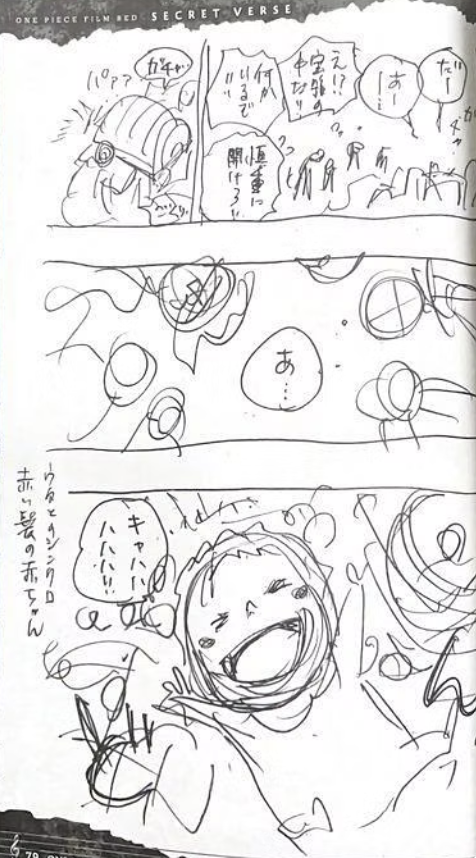 ONE PIECE FILM RED SECRET VERSE
だー
あー
え!?
宝箱の
中だ!!
何か
いるで
慎重に
開けろ!!
ガチャ
パァァ
あ…
キャハハ
ハハハ!!
ウタとのシンクロ
赤い髪の赤ちゃん
79